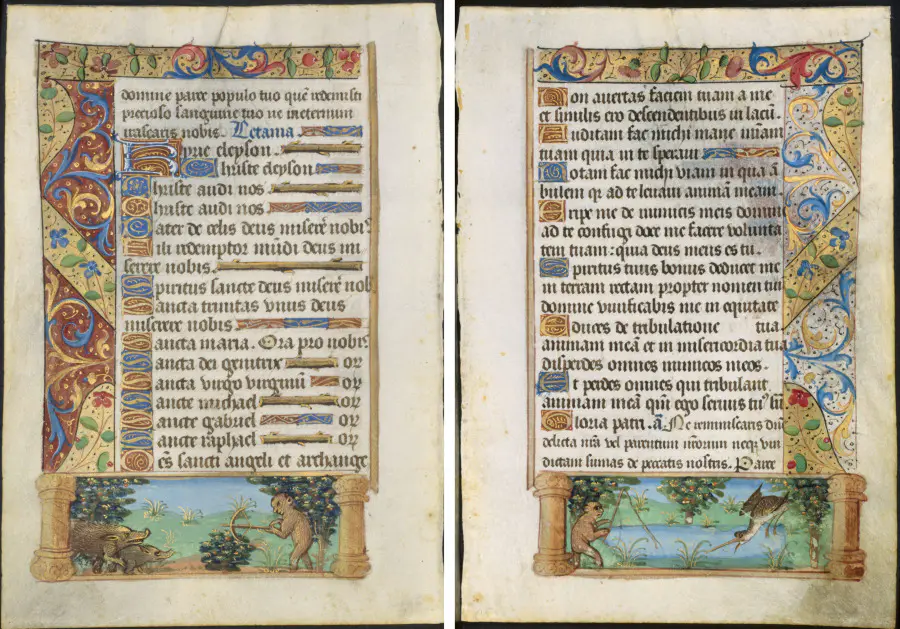 domine parce populo tuo quē redemisti
precioso sanguine tuo ne ineternum
irascaris nobis. Letania
Kyrie eleyson.
Christe eleyson
Christe audi nos
Christe audi nos
Pater de celis deus miserē nobis
Fili redemptor mūdi deus mi
serere nobis.
Spiritus sancte deus miserē nob
Sancta trinitas vnus deus
miserere nobis
Sancta maria. Ora pro nobis
Sancta dei genitrix or
Sancta virgo virginū or
Sancte michael or
Sancte gabriel or
Sancte raphael or
Oēs sancti angeli et archange
Non auertas faciem tuam a me
et similis ero descendentibus in lacū.
Auditam fac michi mane miam
tuam quia in te speraui
Notam fac michi viam in qua ā
bulem qr ad te leuaui animā meam.
Eripe me de inimicis meis domine
ad te confugi doce me facere volunta
tem tuam: quia deus meus es tu.
Spiritus tuus bonus deducet me
in terram rectam propter nomen tuū
domine viuificabis me in equitate
Educes de tribulatione tua
animam meā et in misericordia tua
disperdes omnes inimicos meos.
Et perdes omnes qui tribulant
animam meā qm̄ ego seruus tuꝰ sū
Gloria patri. añ Ne reminiscaris dñe
delicta nr̄a vel parentum nr̄orum neqꝫ vin
dictam sumas de peccatis nostris. Parce